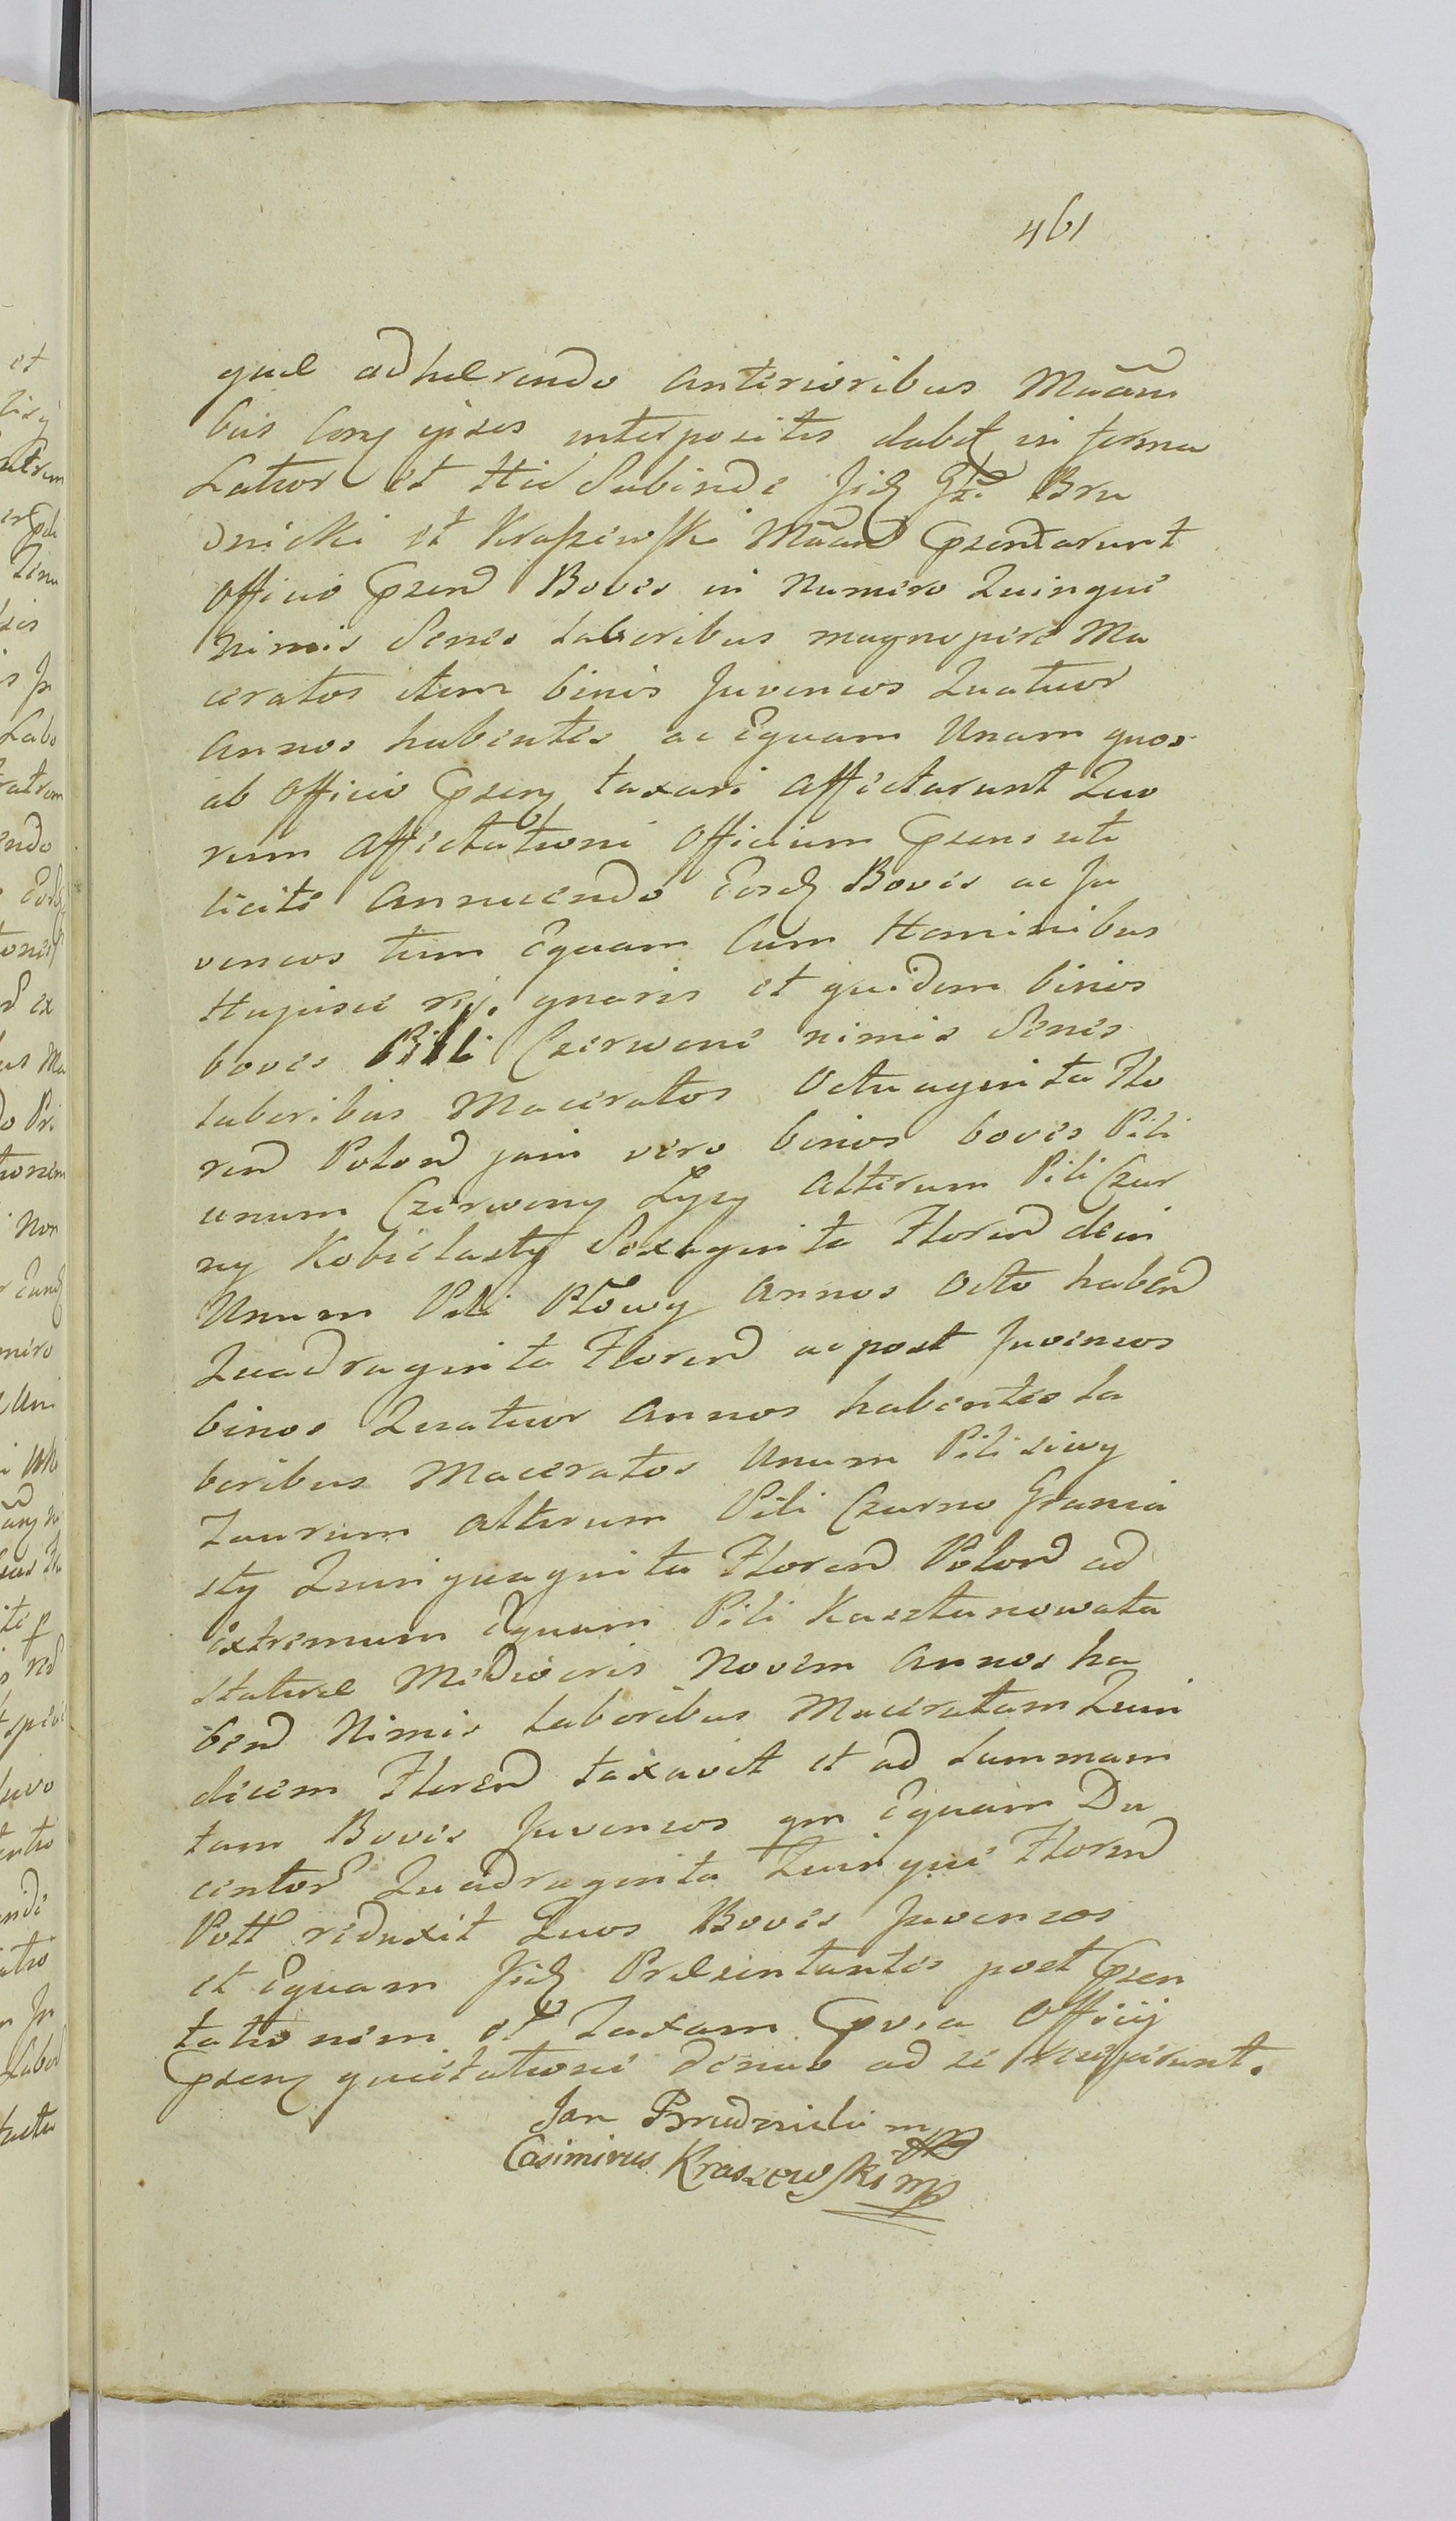 461
quae adhaerendo anterioribus Maãni
bus Cong ipsos interpositis dabit in forma
Latior et Hic Subinde Jidȝ Gsi Bru
dnicki et Kraszewski Mãnd Pzentarunt
Officio Pzend Boves in Numero Quinque
Nimis Senes laboribus magnopere Ma
ceratos item binos Juvencos Quatuor
Annos habentes ac Equam Unam quos
ab Officio Pzenȝ taxari Affectarunt Quo
rum Affectationi Officium Pzens uti
licite Annuendo Eosdȝ Boves ac Ju
vencos tum Equam Cum Hominibus
Hujusce rej. gnaris et quidem binos
boves Pili Czerwone nimis Senes
laboribus Maceratos Octuaginta Flo
rend Polond jam vero binos boves Pili
unum Czerwony Łysy Alterum Pili Czar
ny Kobielasty Sexaginta Florend dein
Unum Pili Płowy Annos Octo habend
Quadraginta Florend ac post Juvencos
binos Quatuor Annos habentes la
boribus Maceratos Unum Pili siwy
Taurum Alterum Pili Czarno Grania
sty Quinquaginta Florend Polond ad
extremum Equam Pili Kasztanowata
Staturae Mediocris Novem Annos ha
bend Nimis Laboribus Maceratam Quin
decem Florend taxavit et ad Summam
tam Boves Juvencos qm Equam Du
centor Quadraginta Quinque Florend
Poll reduxit Quos Boves Juvencos
et Equam Jidȝ Praesentantes post Pzen
tationem et Taxam Pvia Officij
Pzenȝ quietatione denuo ad se receperunt.
Jan Brudnicki mp
Casimirus Kraszewski mp